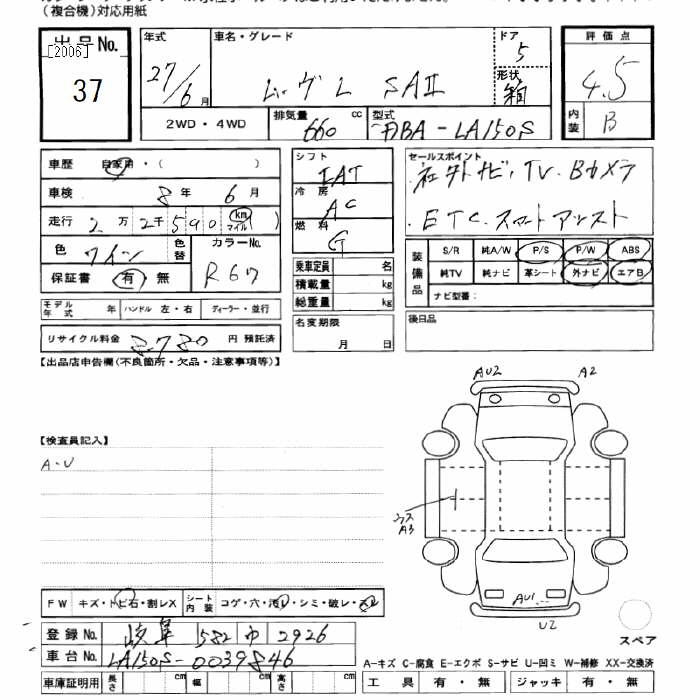 (複合機)対応用紙
出品No.
[2006]
37
年式
27/6月
車名・グレード
ムーヴ L SAⅡ
ドア
5
形状
箱
評価点
4.5
内装
B
2WD・4WD
排気量
660 cc
型式
DBA-LA150S
車歴 自家用・( )
車検 8年 6月
走行 2万2千590 km マイル ( )
色 ワイン 色替 カラーNo. R67
保証書 有 無
モデル年式 年 ハンドル 左・右 ディーラー・並行
リサイクル料金 8780 円 預託済
シフト
IAT
冷房
AC
燃料
G
乗車定員 名
積載量 kg
総重量 kg
名変期限
月 日
セールスポイント
社外ナビ・TV・Bカメラ
・ETC・スマートアシスト
装備品
S/R 純A/W P/S P/W ABS
純TV 純ナビ 革シート 外ナビ エアB
ナビ型番:
後日品
【出品店申告欄(不良箇所・欠品・注意事項等)】
【検査員記入】
A・U
AU2 A2
A3
AU1
U2
スペア
FW キズ・トビ石・割レX シート内装 コゲ・穴・汚レ・シミ・破レ・スレ
登録No. 岐阜 582 や 2926
車台No. LA150S-0039846
車庫証明用 長さ cm 幅 cm 高さ cm
A-キズ C-腐食 E-エクボ S-サビ U-凹ミ W-補修 XX-交換済
工具 有・無 ジャッキ 有・無